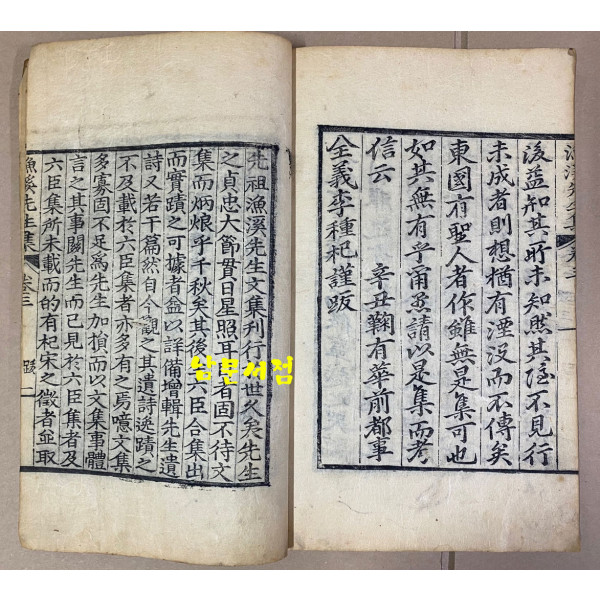 後益知其所未知然其隱不見行
未成者則想猶有湮沒而不傳矣
東國有聖人者作雖無是集可也
如其無有乎請以是集而考
信云 辛丑鞠有華前都事
全義李種杞謹跋
先祖漁溪先生文集刊行世久矣先生
之貞忠大節貫日星照耳者固不待文
集而炳烺乎千秋矣其後六臣合集出
而實蹟之可據者益以詳備增輯先生遺
詩又若干篇然自今觀之其遺詩逸蹟之
不及載於六臣集者亦多有之焉噫文集
多寡固不足爲先生加損而以文集事體
言之其事關先生而已見於六臣集者及
六臣集所未載而的有杞宋之徵者並取
漁溪先生集 卷三 跋 一
삼문서점